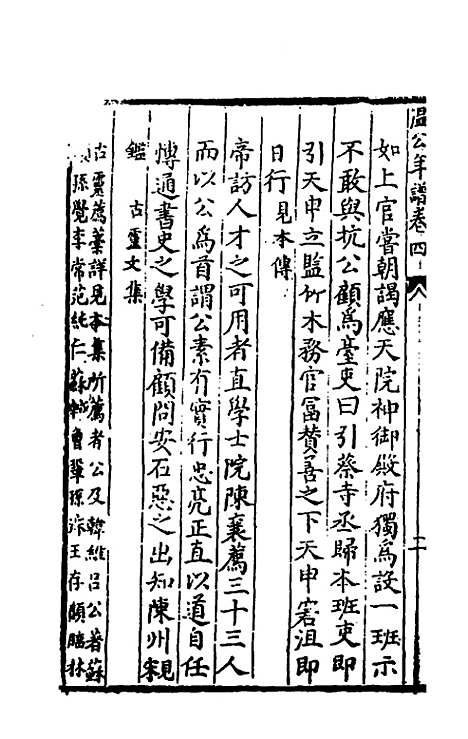 溫公年譜卷四
二十
如上官嘗朝謁應天院神御殿府獨爲設一班示
不敢與抗公顧爲臺吏曰引蔡寺丞歸本班吏即
引天申立監竹木務官富贊善之下天申窘沮即
日行見本傳
帝訪人才之可用者直學士院陳襄薦三十三人
而以公爲首謂公素有實行忠亮正直以道自任
博通書史之學可備顧問安石惡之出知陳州宋史
鑑 古靈文集
古靈薦藁詳見本集所薦者公及韓維呂公著蘇
頌孫覺李常范純仁蘇軾曾鞏孫洙王存顧臨林